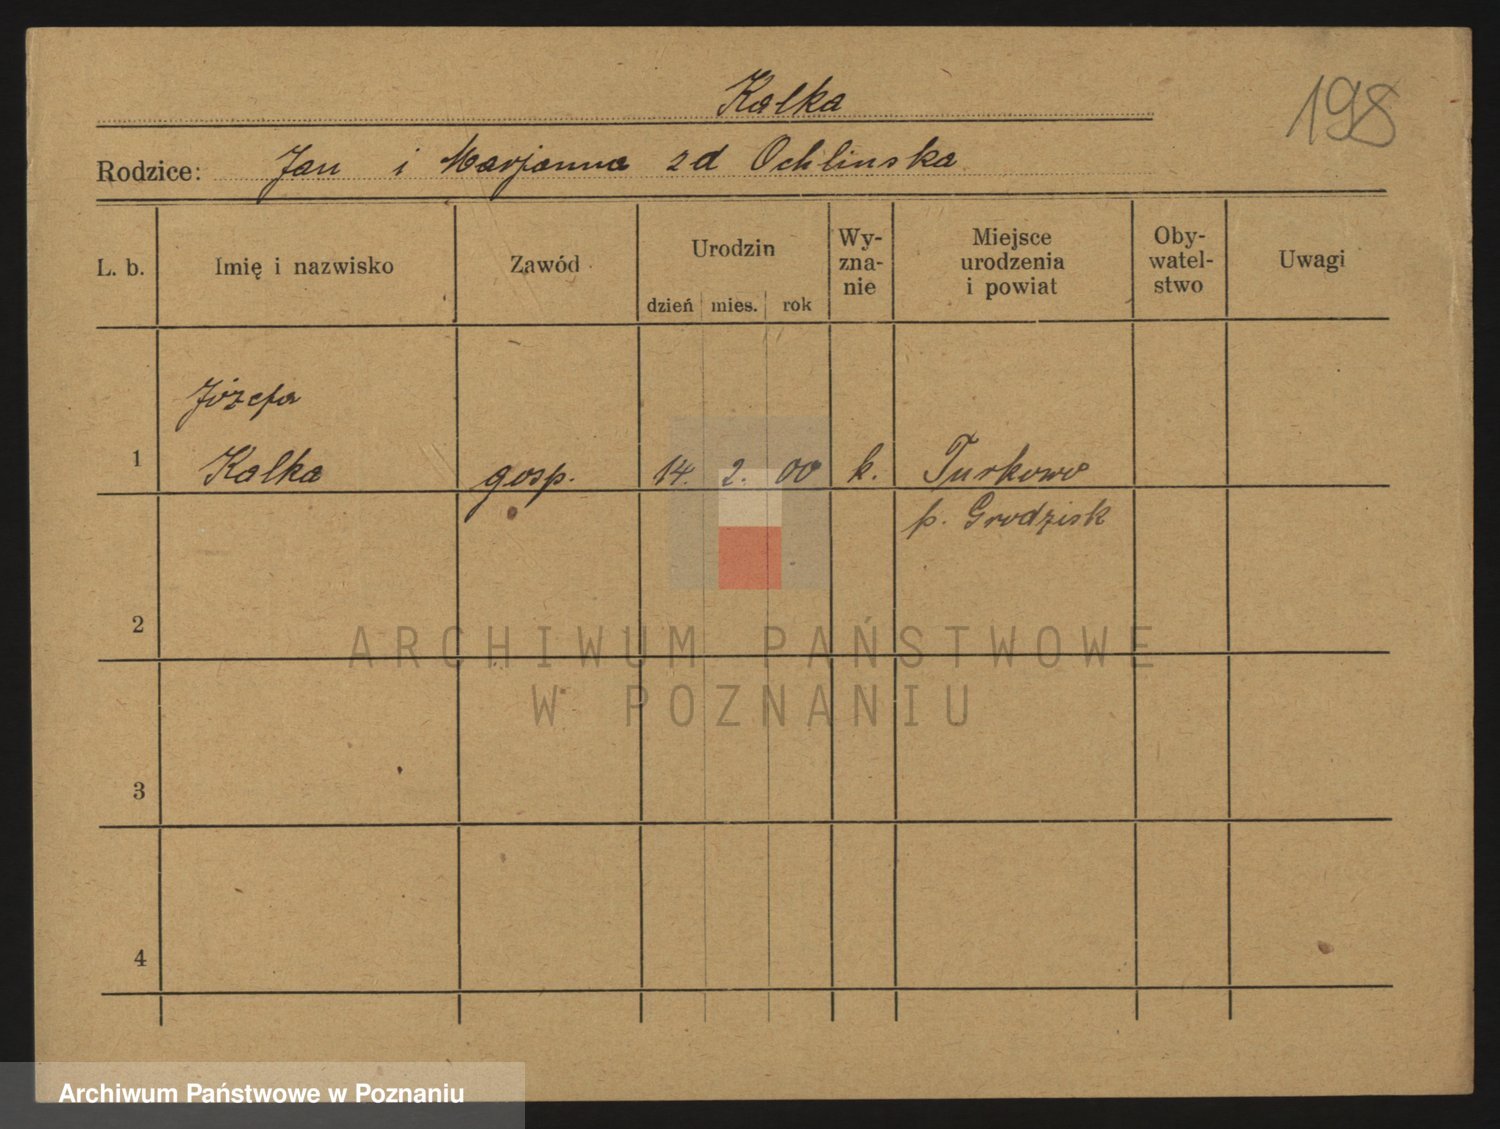 Kalka
198
Rodzice: Jan i Marjanna zd Ochlinska
L. b. Imię i nazwisko Zawód Urodzin dzień mies. rok Wy-zna-nie Miejsce urodzenia i powiat Oby-watel-stwo Uwagi
Józefa
1 Kalka gosp. 14. 2. 00 k. Turkowo
p. Grodzisk
2
ARCHIWUM PAŃSTWOWE
W POZNANIU
3
4
Archiwum Państwowe w Poznaniu